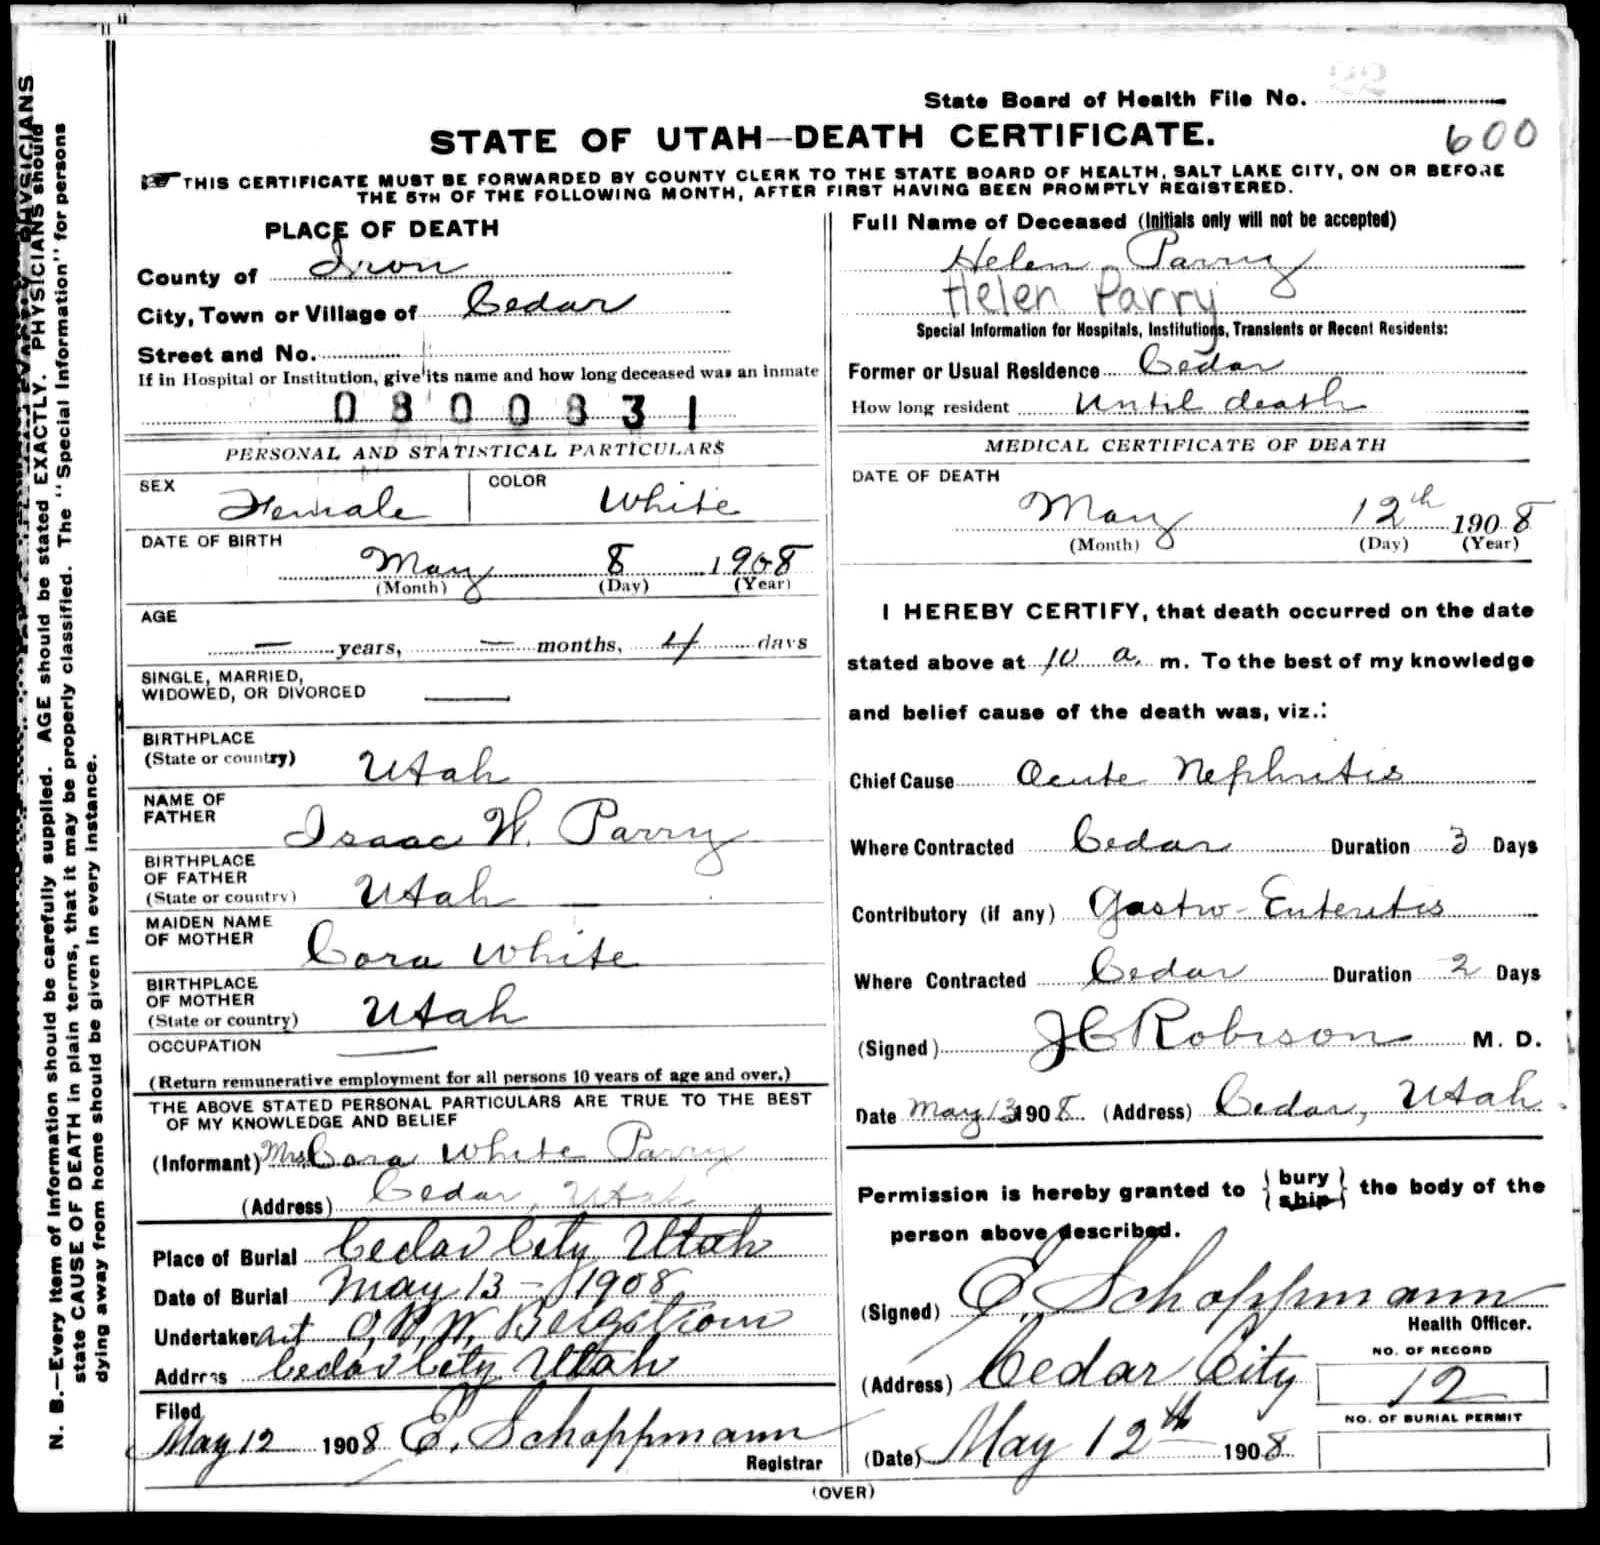 State Board of Health File No.
22
STATE OF UTAH—DEATH CERTIFICATE.
600
THIS CERTIFICATE MUST BE FORWARDED BY COUNTY CLERK TO THE STATE BOARD OF HEALTH, SALT LAKE CITY, ON OR BEFORE
THE 5TH OF THE FOLLOWING MONTH, AFTER FIRST HAVING BEEN PROMPTLY REGISTERED.
PLACE OF DEATH
County of Iron
City, Town or Village of Cedar
Street and No.
If in Hospital or Institution, give its name and how long deceased was an inmate
0800831
PERSONAL AND STATISTICAL PARTICULARS
SEX Female COLOR White
DATE OF BIRTH
May 8 1908
(Month) (Day) (Year)
AGE
— years, — months, 4 days
SINGLE, MARRIED,
WIDOWED, OR DIVORCED —
BIRTHPLACE
(State or country) Utah
NAME OF
FATHER Isaac W. Parry
BIRTHPLACE
OF FATHER
(State or country) Utah
MAIDEN NAME
OF MOTHER Cora White
BIRTHPLACE
OF MOTHER
(State or country) Utah
OCCUPATION —
(Return remunerative employment for all persons 10 years of age and over.)
THE ABOVE STATED PERSONAL PARTICULARS ARE TRUE TO THE BEST
OF MY KNOWLEDGE AND BELIEF
(Informant) Mrs. Cora White Parry
(Address) Cedar, Utah
Place of Burial Cedar City Utah
Date of Burial May 13 - 1908
Undertaker Bergstrom
Address Cedar City Utah
Filed
May 12 1908 E. Schoppmann
Registrar
Full Name of Deceased (Initials only will not be accepted)
Helen Parry
Helen Parry
Special Information for Hospitals, Institutions, Transients or Recent Residents:
Former or Usual Residence Cedar
How long resident Until death
MEDICAL CERTIFICATE OF DEATH
DATE OF DEATH
May 12th 1908
(Month) (Day) (Year)
I HEREBY CERTIFY, that death occurred on the date
stated above at 10 a. m. To the best of my knowledge
and belief cause of the death was, viz.:
Chief Cause Acute Nephritis
Where Contracted Cedar Duration 3 Days
Contributory (if any) Gastro-Enteretis
Where Contracted Cedar Duration 2 Days
(Signed) J C Robison M. D.
Date May 13 1908 (Address) Cedar, Utah.
Permission is hereby granted to {bury
ship} the body of the
person above described.
(Signed) E. Schoppmann
Health Officer.
(Address) Cedar City
NO. OF RECORD
12
NO. OF BURIAL PERMIT
(Date) May 12th 1908
(OVER)
N. B.—Every item of information should be carefully supplied. AGE should be stated EXACTLY. PHYSICIANS should
state CAUSE OF DEATH in plain terms, that it may be properly classified. The "Special Information" for persons
dying away from home should be given in every instance.